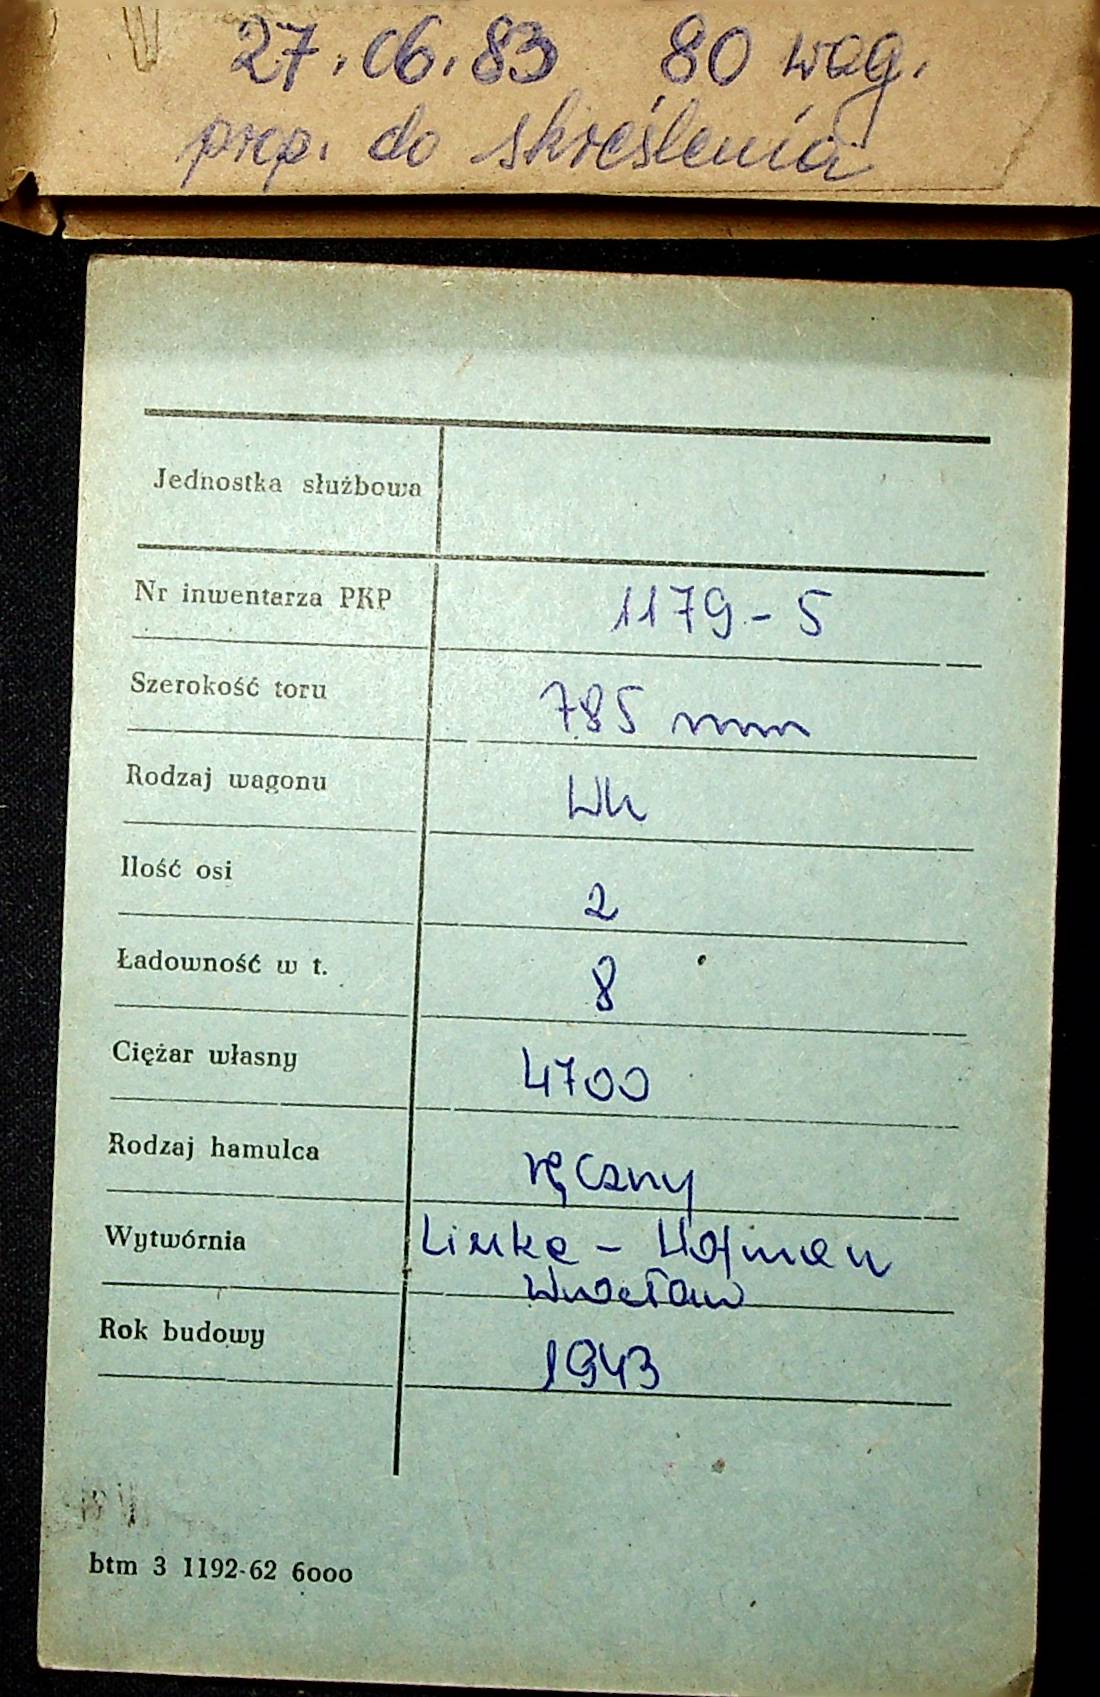 27.06.83 80 wag.
prop. do skreślenia
Jednostka służbowa
Nr inwentarza PKP 1179-5
Szerokość toru 785 mm
Rodzaj wagonu Wk
Ilość osi 2
Ładowność w t. 8
Ciężar własny 4700
Rodzaj hamulca ręczny
Wytwórnia Linke - Hofman
Wrocław
Rok budowy 1943
btm 3 1192-62 6000